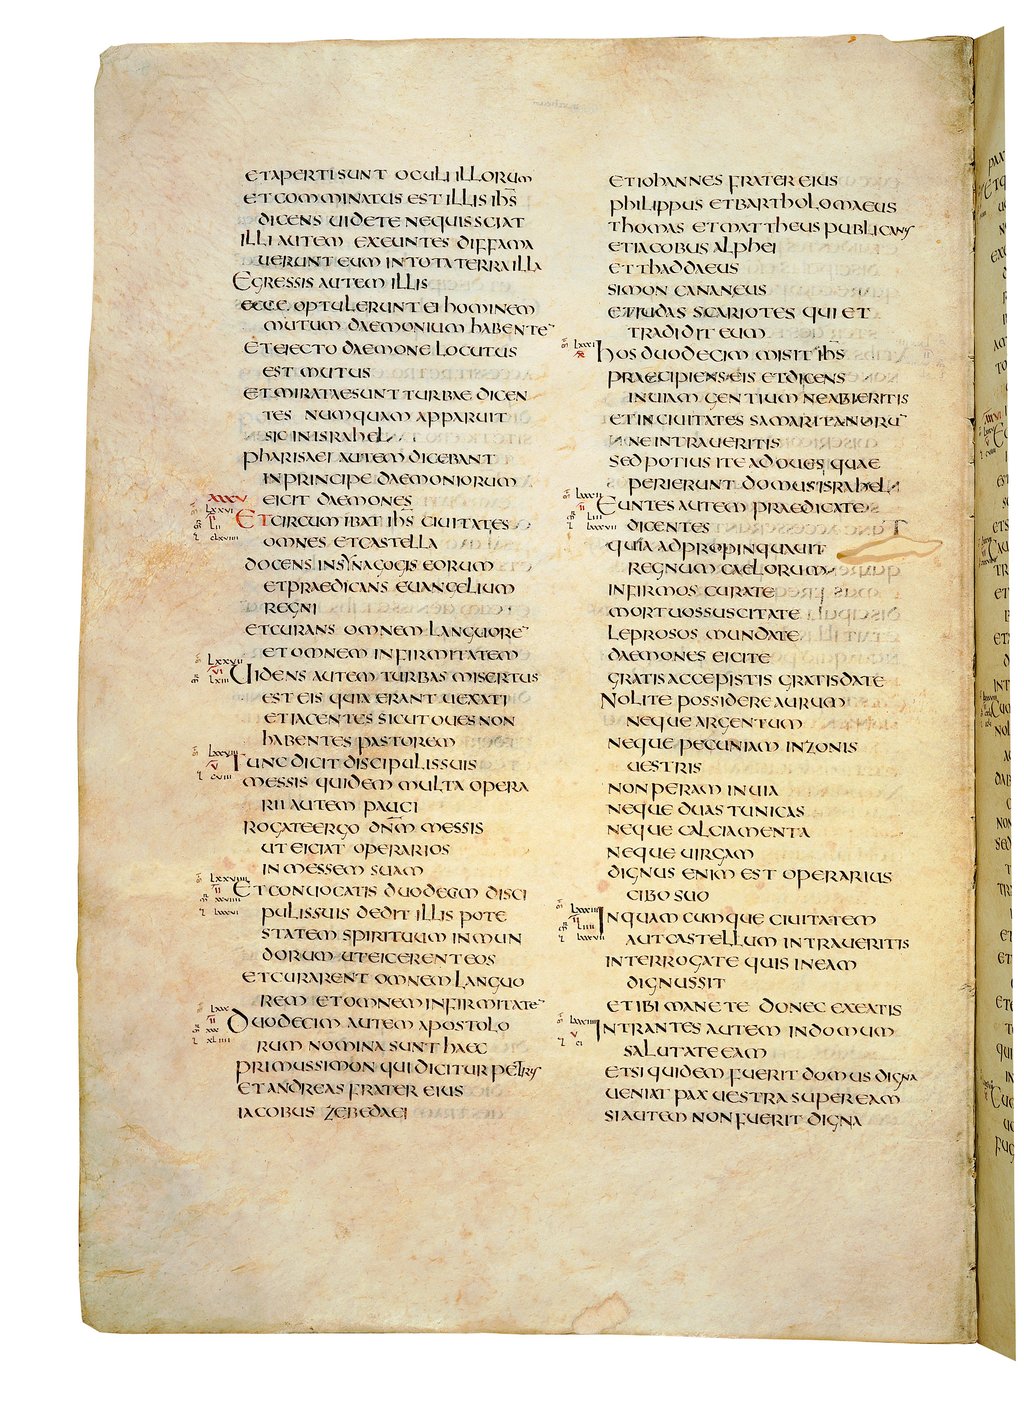 ETAPERTI SUNT OCULI ILLORUM
ET COMMINATUS EST ILLIS IHS
DICENS UIDETE NEQUIS SCIAT
ILLI AUTEM EXEUNTES DIFFAMA
UERUNT EUM IN TOTA TERRA ILLA
EGRESSIS AUTEM ILLIS
ECCE OPTULERUNT EI HOMINEM
MUTUM DAEMONIUM HABENTE
ET EIECTO DAEMONE LOCUTUS
EST MUTUS
ET MIRATAE SUNT TURBAE DICEN
TES NUMQUAM APPARUIT
SIC IN ISRAHEL
PHARISAEI AUTEM DICEBANT
IN PRINCIPE DAEMONIORUM
XXXV EICIT DAEMONES
LXXVI ET CIRCUM IBAT IHS CIUITATES
OMNES ET CASTELLA
DOCENS IN SYNAGOGIS EORUM
ET PRAEDICANS EUANGELIUM
REGNI
ET CURANS OMNEM LANGUORE
ET OMNEM INFIRMITATEM
LXXVII UIDENS AUTEM TURBAS MISERTUS
EST EIS QUIA ERANT UEXATI
ET IACENTES SICUT OUES NON
HABENTES PASTOREM
LXXVIII TUNC DICIT DISCIPULIS SUIS
MESSIS QUIDEM MULTA OPERA
RII AUTEM PAUCI
ROGATE ERGO DNM MESSIS
UT EICIAT OPERARIOS
IN MESSEM SUAM
LXXVIIII ET CONUOCATIS DUODECIM DISCI
PULIS SUIS DEDIT ILLIS POTE
STATEM SPIRITUUM INMUN
DORUM UT EICERENT EOS
ET CURARENT OMNEM LANGUO
REM ET OMNEM INFIRMITATE
LXXX DUODECIM AUTEM APOSTOLO
RUM NOMINA SUNT HAEC
PRIMUS SIMON QUI DICITUR PETRUS
ET ANDREAS FRATER EIUS
IACOBUS ZEBEDAEI
ET IOHANNES FRATER EIUS
PHILIPPUS ET BARTHOLOMAEUS
THOMAS ET MATTHEUS PUBLICANUS
ET IACOBUS ALPHEI
ET THADDAEUS
SIMON CANANEUS
ET IUDAS SCARIOTES QUI ET
TRADIDIT EUM
LXXXI HOS DUODECIM MISIT IHS
PRAECIPIENS EIS ET DICENS
IN UIAM GENTIUM NE ABIERITIS
ET IN CIUITATES SAMARITANORU
NE INTRAUERITIS
SED POTIUS ITE AD OUES QUAE
PERIERUNT DOMUS ISRAHEL
LXXXII EUNTES AUTEM PRAEDICATE
DICENTES
QUIA ADPROPINQUAUIT
REGNUM CAELORUM
INFIRMOS CURATE
MORTUOS SUSCITATE
LEPROSOS MUNDATE
DAEMONES EICITE
GRATIS ACCEPISTIS GRATIS DATE
NOLITE POSSIDERE AURUM
NEQUE ARGENTUM
NEQUE PECUNIAM IN ZONIS
UESTRIS
NON PERAM IN UIA
NEQUE DUAS TUNICAS
NEQUE CALCIAMENTA
NEQUE UIRGAM
DIGNUS ENIM EST OPERARIUS
CIBO SUO
LXXXIII IN QUAMCUMQUE CIUITATEM
AUT CASTELLUM INTRAUERITIS
INTERROGATE QUIS IN EAM
DIGNUS SIT
ET IBI MANETE DONEC EXEATIS
LXXXIIII INTRANTES AUTEM IN DOMUM
SALUTATE EAM
ET SI QUIDEM FUERIT DOMUS DIGNA
UENIAT PAX UESTRA SUPER EAM
SI AUTEM NON FUERIT DIGNA